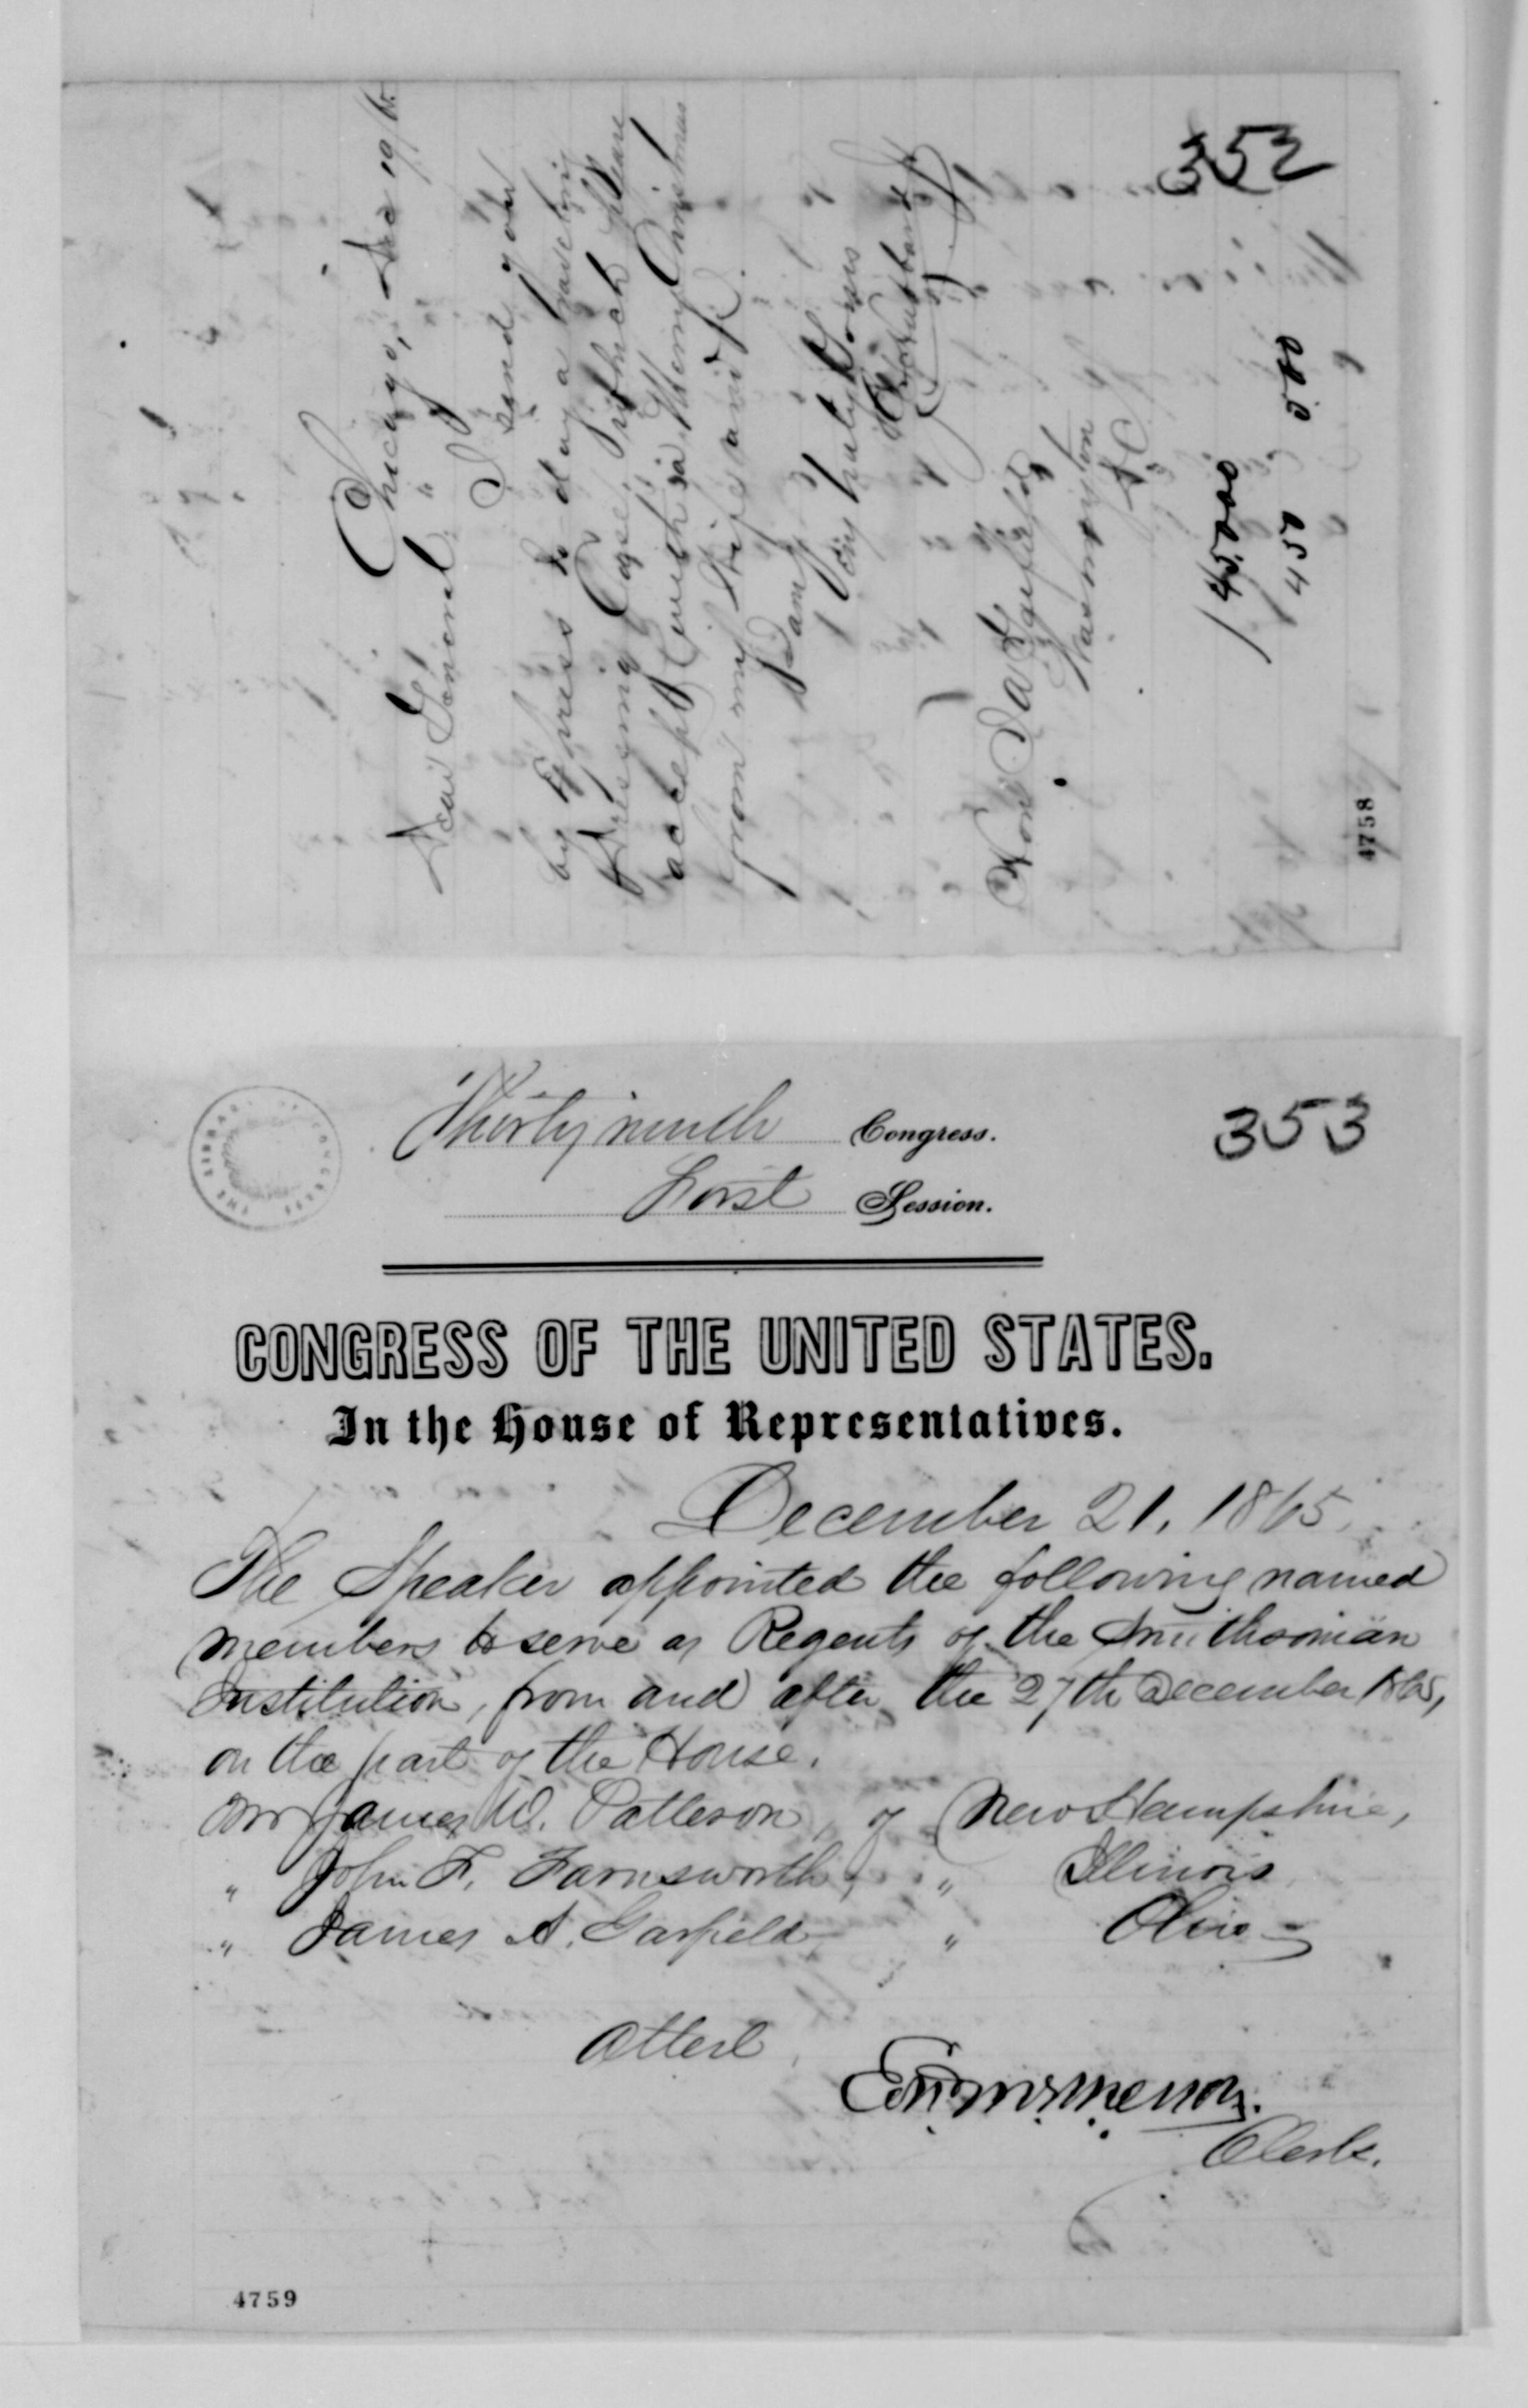 352
Chicago, Dec 19/65
Dear General "
I send you
by Express to day a traveling
Dressing Case, which please
accept with a Merry Christmas
from my Wife and I.
I am
Very truly Yours
Hon Jas A Garfield
Washington
D.C.
45000
450 500
4758
353
Thirty ninth Congress.
First Session.
THE LIBRARY OF CONGRESS
CONGRESS OF THE UNITED STATES.
In the House of Representatives.
December 21, 1865.
The Speaker appointed the following named
members to serve as Regents of the Smithsonian
Institution, from and after the 27th December 1865,
on the part of the House.
Mr James W. Patterson, of New Hampshire,
" John F. Farnsworth, " Illinois
" James A. Garfield " Ohio
Attest,
Edwd McPherson.
Clerk.
4759